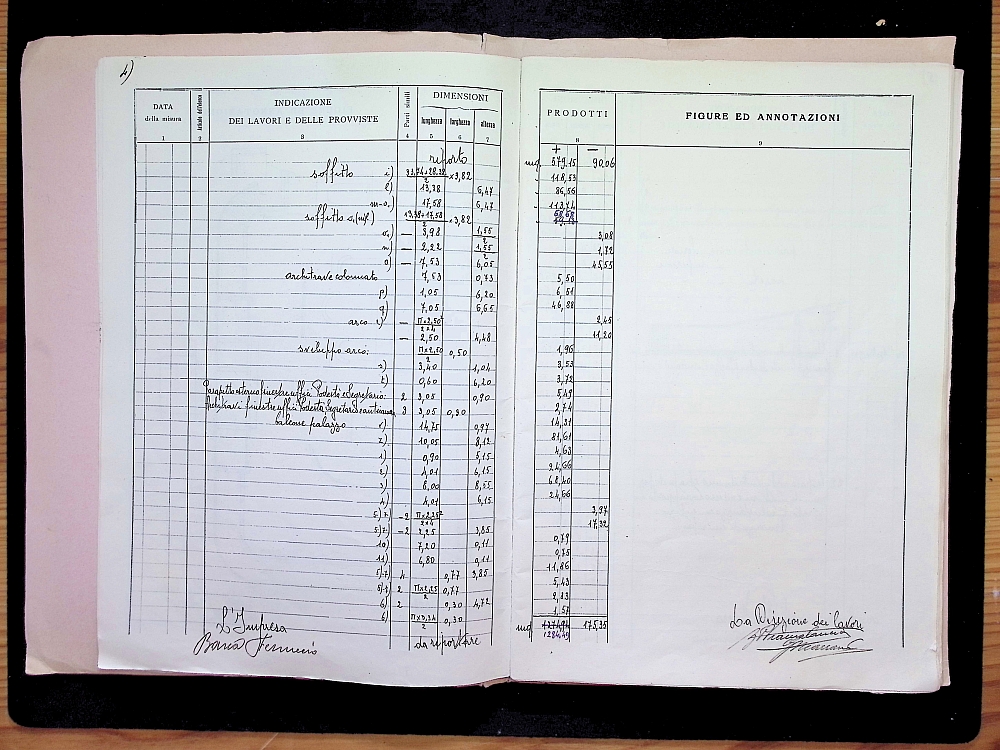 4)
DATA della misura INDICAZIONE DEI LAVORI E DELLE PROVVISTE Parti simili DIMENSIONI lunghezza larghezza altezza PRODOTTI FIGURE ED ANNOTAZIONI
1 2 3 4 5 6 7 8 9
+ —
riporto mq 579,15 90,06
soffitto i) ×3,82 118,53
l) 13,38 6,47 86,56
m-o,) 17,58 6,47 113,74
soffitto 13,38+17,58 2 ×3,82
— 3,98 1,55 2 3,08
n) — 2,22 1,55 2 1,72
o) — 7,53 6,05 45,55
architrave colonnato 7,53 0,73 5,50
p) 1,05 6,20 6,51
q) 7,05 6,65 46,88
arco — π×2,50² 2×4 2,45
— 2,50 4,48 11,20
sviluppo arco: π×2,50 2 0,50 1,96
3,40 1,04 3,53
t) 0,60 6,20 3,72
Parapetto esterno finestre uffici Podestà e Segretario: 2 3,05 0,90 5,49
Architravi finestre uffici Podestà Segretario e anticamera 3 3,05 0,30 2,74
balcone palazzo 14,75 0,97 14,31
z) 10,05 8,12 81,61
1) 0,90 5,15 4,63
2) 4,01 6,15 24,66
3) 8,00 8,55 68,40
4) 4,01 6,15 24,66
5)7) —2 π×2,25² 2×4 3,97
5)7) —2 2,25 3,85 17,32
10) 7,20 0,11 0,79
11) 6,80 0,11 0,75
5)-7) 4 0,77 3,85 11,86
5)-7) 2 π×2,25 2 0,77 5,43
6) 2 0,30 4,72 2,83
6) π×3,34 2 0,30 1,57
L'Impresa da riportare mq 1284,49 175,35 La Direzione dei lavori